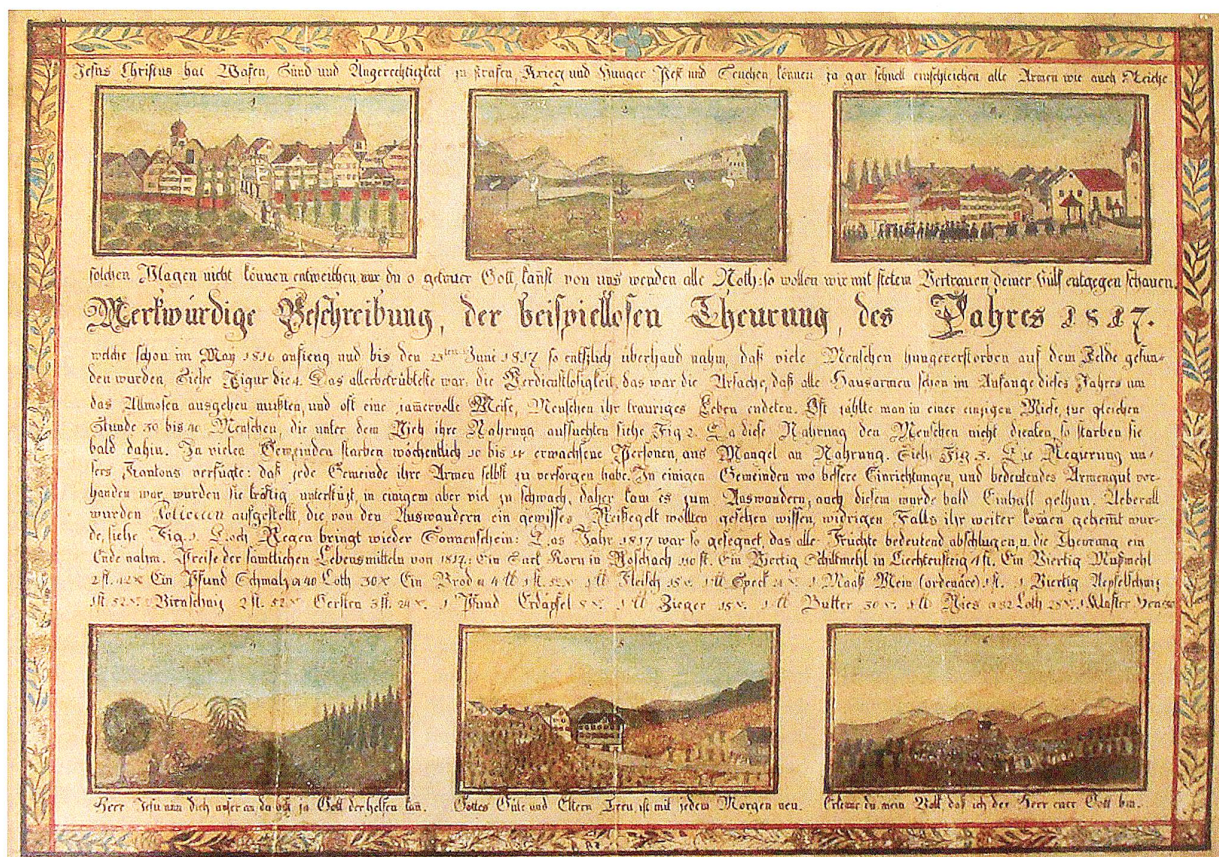 Jesus Christus hat Wafen, Sünd und Ungerechtigkeit zu strafen, Krieg und Hunger Pest und Seuchen, können ja gar schnell einschleichen alle Armen wie auch Reiche
1
2
3
solchen Plagen nicht können entweichen nur du o getreuer Gott, kanst von uns wenden alle Noth: so wollen wir mit stetem Vertrauen deiner Hülf entgegen schauen.
Merkwürdige Beschreibung, der beispiellosen Theurung, des Jahres 1817.
welche schon im May 1816 anfieng und bis den 23ten Juni 1817 so entsetzlich überhand nahm, daß viele Menschen hungererstorben auf dem Felde gefun-
den wurden, Siehe Figur die 4. Das allerbetrübteste war: die Verdienstlosigkeit, das war die Ursache, daß alle Hausarmen schon im Anfange dieses Jahres um
das Allmosen ausgehen mußten, und oft eine jamervolle Weise, Menschen ihr trauriges Leben endeten. Oft zählte man in einer einzigen Wiese, zur gleichen
Stunde 30 bis 40 Menschen, die unter dem Vieh ihre Nahrung aufsuchten siehe Fig 2. Da diese Nahrung den Menschen nicht dienten, so starben sie
bald dahin. In vielen Gemeinden starben wöchentlich 10 bis 14 erwachsene Personen, aus Mangel an Nahrung. Sieh: Fig 3. Die Regierung un-
sers Kantons verfügte: daß jede Gemeinde ihre Armen selbst zu versorgen habe. In einigen Gemeinden wo bessere Einrichtungen, und bedeutendes Armengut vor-
handen war, wurden sie kräftig unterstüzt, in einigem aber viel zu schwach, daher kam es zum Auswandern, auch diesem wurde bald Einhalt gethan. Ueberall
wurden Polizeien aufgestellt, die von den Auswandern ein gewisses Reißegelt wollten gesehen wissen, widrigen Falls ihr weiter komen gehemt wur-
de, siehe Fig. 1. Doch Regen bringt wieder Sonnenschein: Das Jahr 1817 war so gesegnet, das alle Früchte bedeutend abschlugen, u. die Theurung ein
Ende nahm. Preise der samtlichen Lebensmitteln von 1817: Ein Sack Korn in Roschach 110 fl. Ein Viertig Schiltmehl in Liechtensteig 4 fl. Ein Viertig Mußmehl
2 fl. 42 x Ein Pfund Schmalz a 40 Loth 30 x Ein Brod a 4 tt 1 fl. 52 x 1 tt Fleisch 15 x. 1 tt Speck 24 x. 1 Maaß Wein (ordenäre) 1 fl. 1 Viertig Aepfelschniz
1 fl. 52 x. Birnschniz 2 fl. 52 x. Gersten 3 fl. 24 x. 1 Pfund Erdäpfel 8 x. 1 tt Zieger 15 x. 1 tt Butter 30 x. 1 tt Ries a 32 Loth 28 x. 1 Klafter Heu
4
5
6
Herr Jesu nim dich unser an du bist ja Gott der helfen kan.
Gottes Güte und Eltern Treu, ist mit jedem Morgen neu.
Erkene du mein Volk daß ich der Herr euer Gott bin.